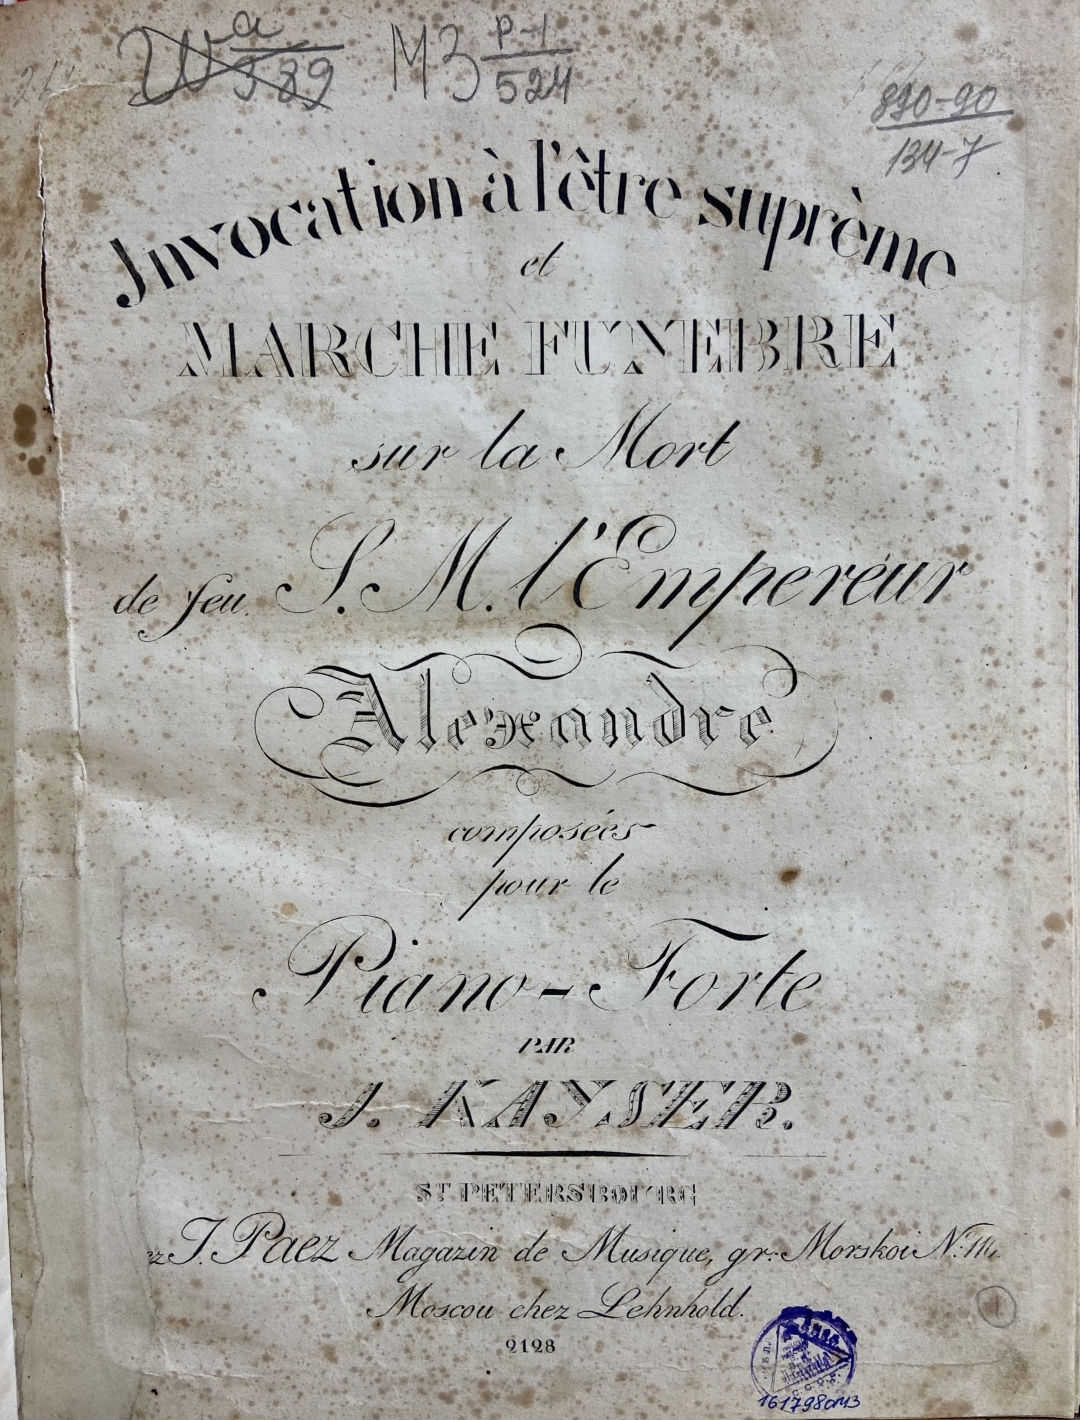 Wa
389
МЗ Р-1
524
890-90
134-7
Invocation à l'être suprème
et
MARCHE FUNEBRE
sur la Mort
de feu S. M. l'Empereur
Alexandre
composées
pour le
Piano-Forte
PAR
J. KAYSER.
ST PETERSBOURG
ez J. Paez Magazin de Musique, gr: Morskoi N:
Moscou chez Lehnhold.
2128
1
С.С.С.Р.
1617980МЗ